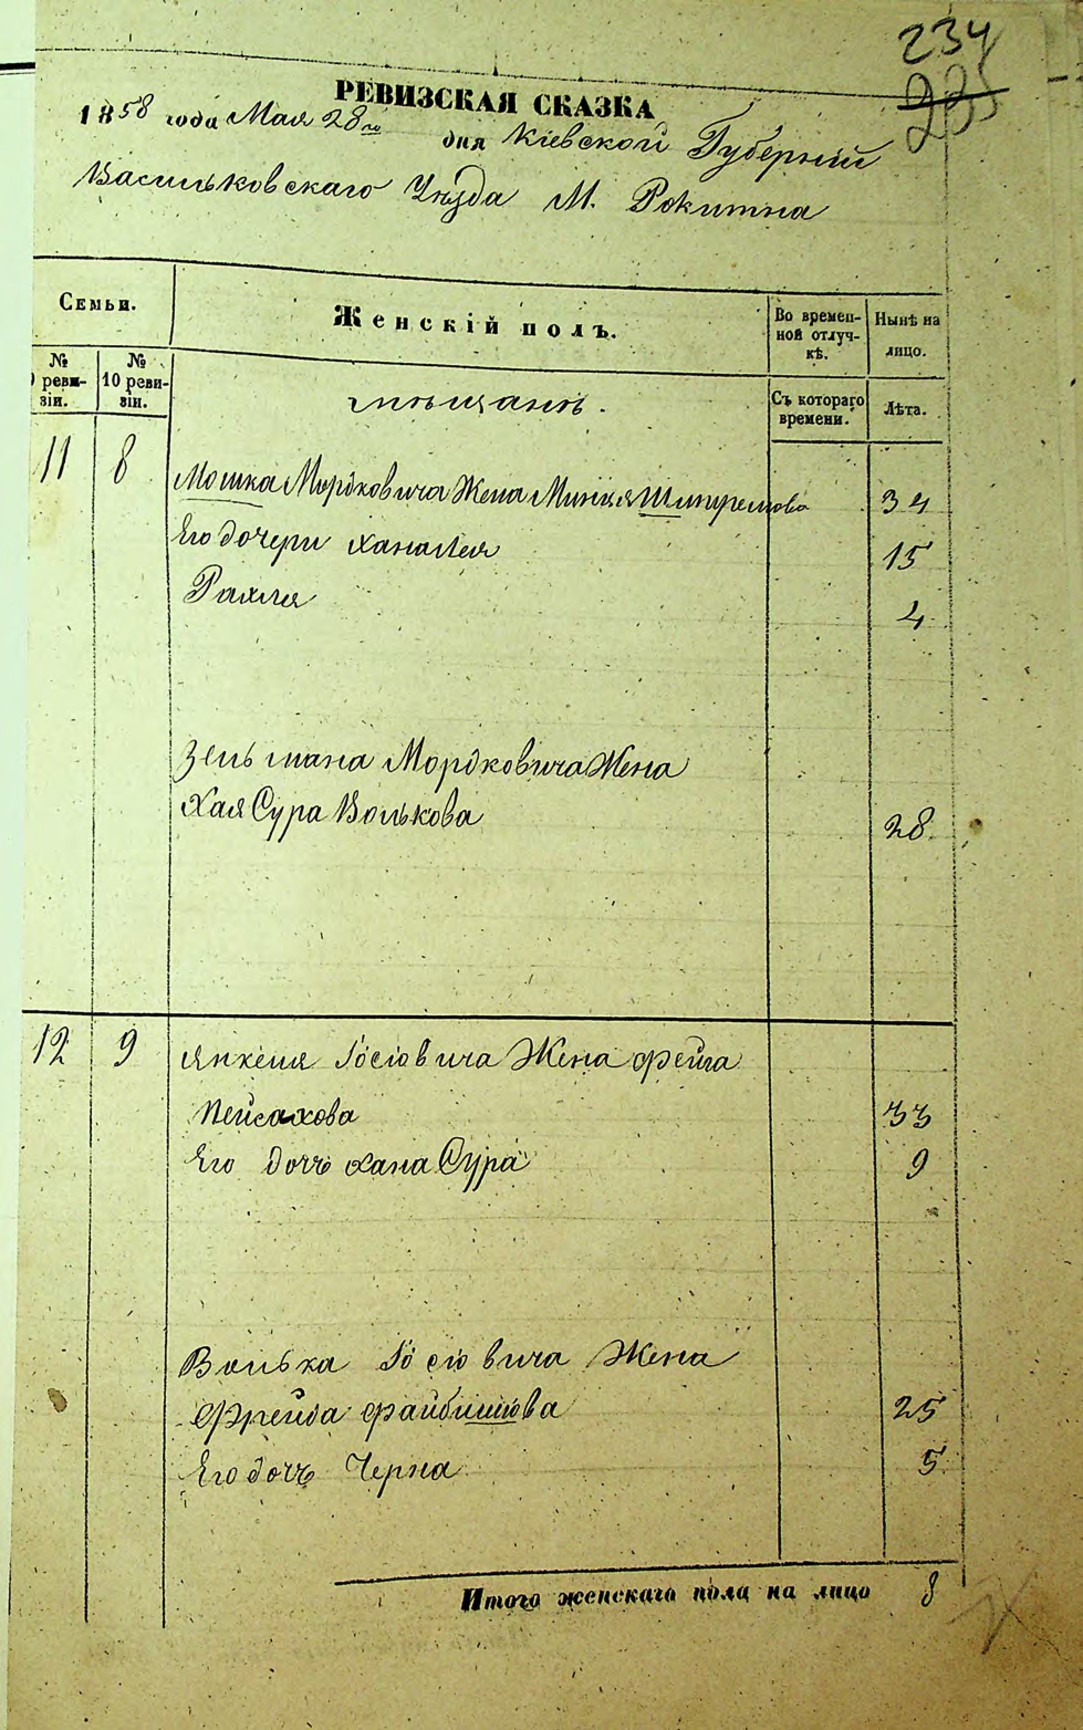 234
235
РЕВИЗСКАЯ СКАЗКА
1858 года Мая 28го дня Кіевской Губерніи
Васильковскаго Уѣзда М. Рокитна
Семьи.
Женскій полъ.
Во времен-
ной отлуч-
кѣ.
Нынѣ на
лицо.
№
реви-
зіи.
№
10 реви-
зіи.
мѣщанѣ.
Съ котораго
времени.
Лѣта.
11 8 Мошка Мордковича Жена Минця 34
Его дочери Хана Лея 15
Рахля 4
Зельмана Мордковича Жена
Хая Сура Волькова 28
12 9 Янкеля Іосіовича Жена Фейга
Пейсахова 33
Его дочь Хана Сура 9
Волька Іосіовича Жена
Фрейда Файбишова 25
Его дочь Черна 5
Итого женскаго пола на лицо 8